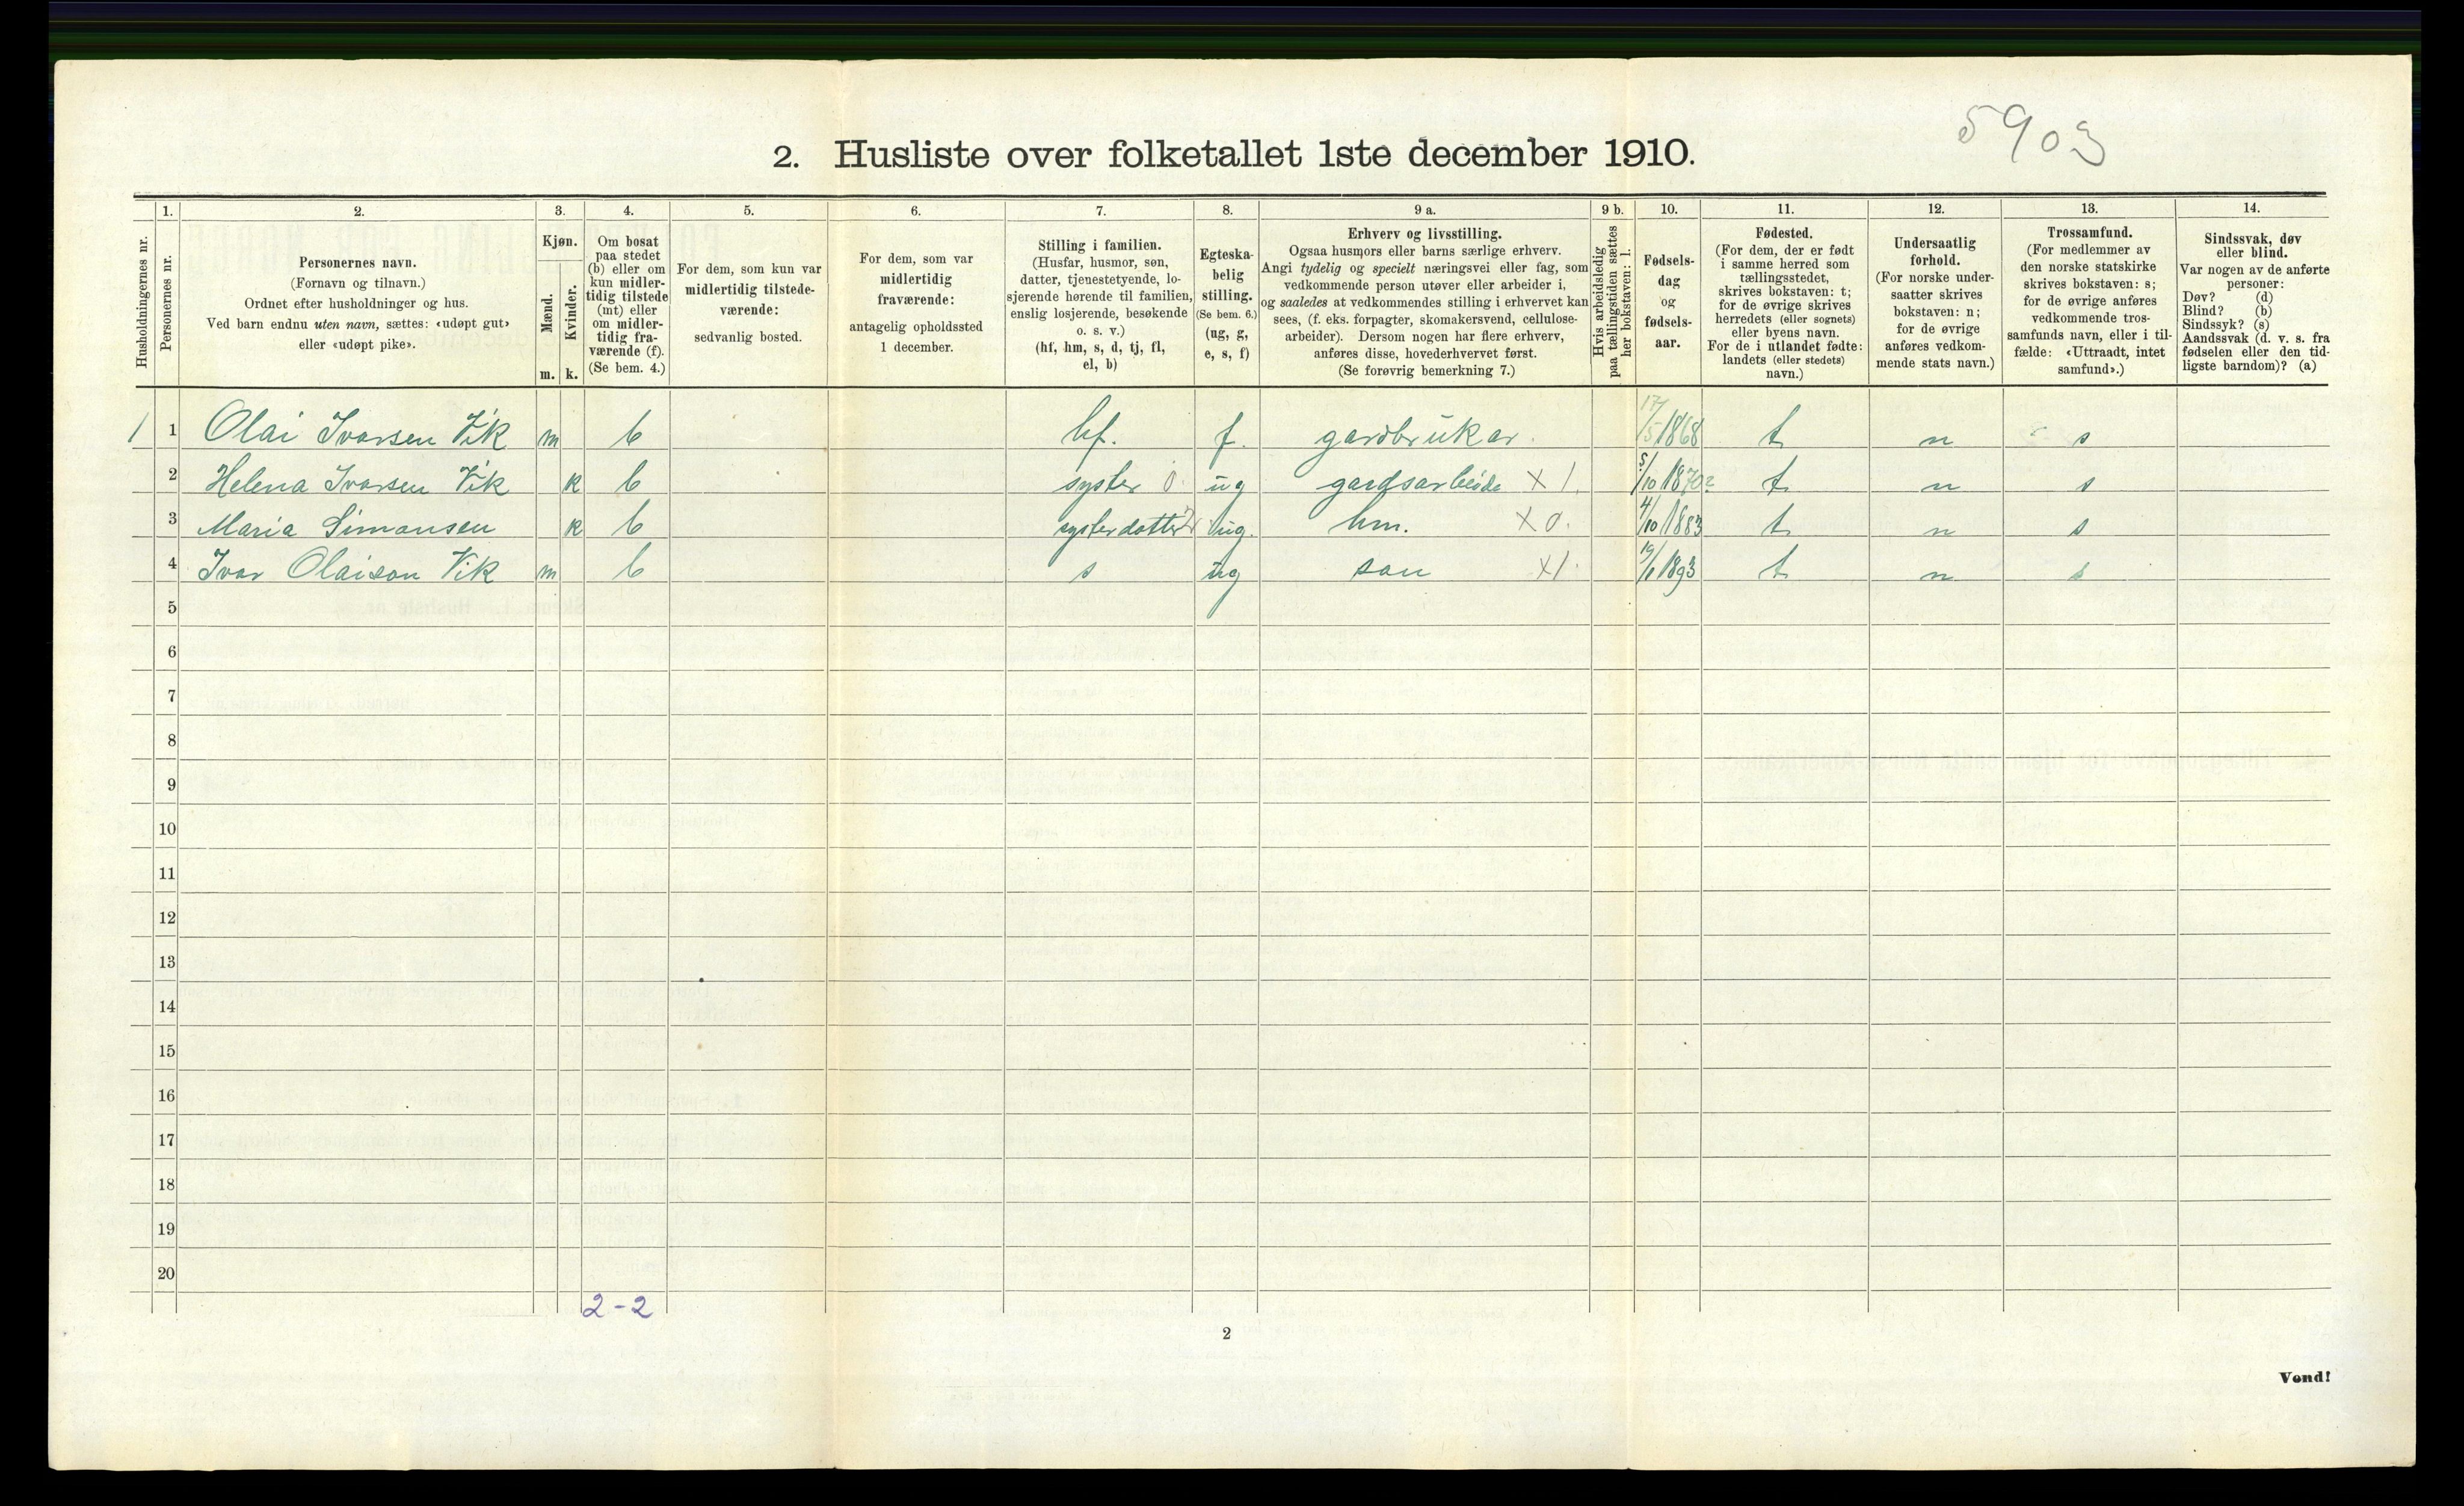 5903
2. Husliste over folketallet 1ste december 1910.
Husholdningernes nr.
1.
Personernes nr.
2.
Personernes navn.
(Fornavn og tilnavn.)
Ordnet efter husholdninger og hus.
Ved barn endnu uten navn, sættes: «udøpt gut»
eller «udøpt pike».
3.
Kjøn.
Mænd.
Kvinder.
m. k.
4.
Om bosat
paa stedet
(b) eller om
kun midler-
tidig tilstede
(mt) eller
om midler-
tidig fra-
værende (f).
(Se bem. 4.)
5.
For dem, som kun var
midlertidig tilstede-
værende:
sedvanlig bosted.
6.
For dem, som var
midlertidig
fraværende:
antagelig opholdssted
1 december.
7.
Stilling i familien.
(Husfar, husmor, søn,
datter, tjenestetyende, lo-
sjerende hørende til familien,
enslig losjerende, besøkende
o. s. v.)
(hf, hm, s, d, tj, fl,
el, b)
8.
Egteska-
belig
stilling.
(Se bem. 6.)
(ug, g,
e, s, f)
9 a.
Erhverv og livsstilling.
Ogsaa husmors eller barns særlige erhverv.
Angi tydelig og specielt næringsvei eller fag, som
vedkommende person utøver eller arbeider i,
og saaledes at vedkommendes stilling i erhvervet kan
sees, (f. eks. forpagter, skomakersvend, cellulose-
arbeider). Dersom nogen har flere erhverv,
anføres disse, hovederhvervet først.
(Se forøvrig bemerkning 7.)
9 b.
Hvis arbeidsledig
paa tællingstiden sættes
her bokstaven: l.
10.
Fødsels-
dag
og
fødsels-
aar.
11.
Fødested.
(For dem, der er født
i samme herred som
tællingsstedet,
skrives bokstaven: t;
for de øvrige skrives
herredets (eller sognets)
eller byens navn.
For de i utlandet fødte:
landets (eller stedets)
navn.)
12.
Undersaatlig
forhold.
(For norske under-
saatter skrives
bokstaven: n;
for de øvrige
anføres vedkom-
mende stats navn.)
13.
Trossamfund.
(For medlemmer av
den norske statskirke
skrives bokstaven: s;
for de øvrige anføres
vedkommende tros-
samfunds navn, eller i til-
fælde: «Uttraadt, intet
samfund».)
14.
Sindssvak, døv
eller blind.
Var nogen av de anførte
personer:
Døv? (d)
Blind? (b)
Sindssyk? (s)
Aandssvak (d. v. s. fra
fødselen eller den tid-
ligste barndom)? (a)
1 1 Olai Ivarsen Vik m b hf. f. gardbrukar. 17/5 1868 t n s
2 Helena Ivarsen Vik k b syster 0. ug gardsarbeide X 1. 5/10 1870? t n s
3 Maria Simonsen k b systerdotter ug. hm. X 0. 4/10 1883 t n s
4 Ivar Olaison Vik m b s ug son X 1. 1893 t n s
5
6
7
8
9
10
11
12
13
14
15
16
17
18
19
20
2-2
2
Vend!